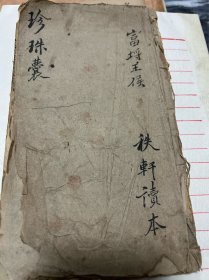 珍珠囊
富埒王侯
秩軒讀本